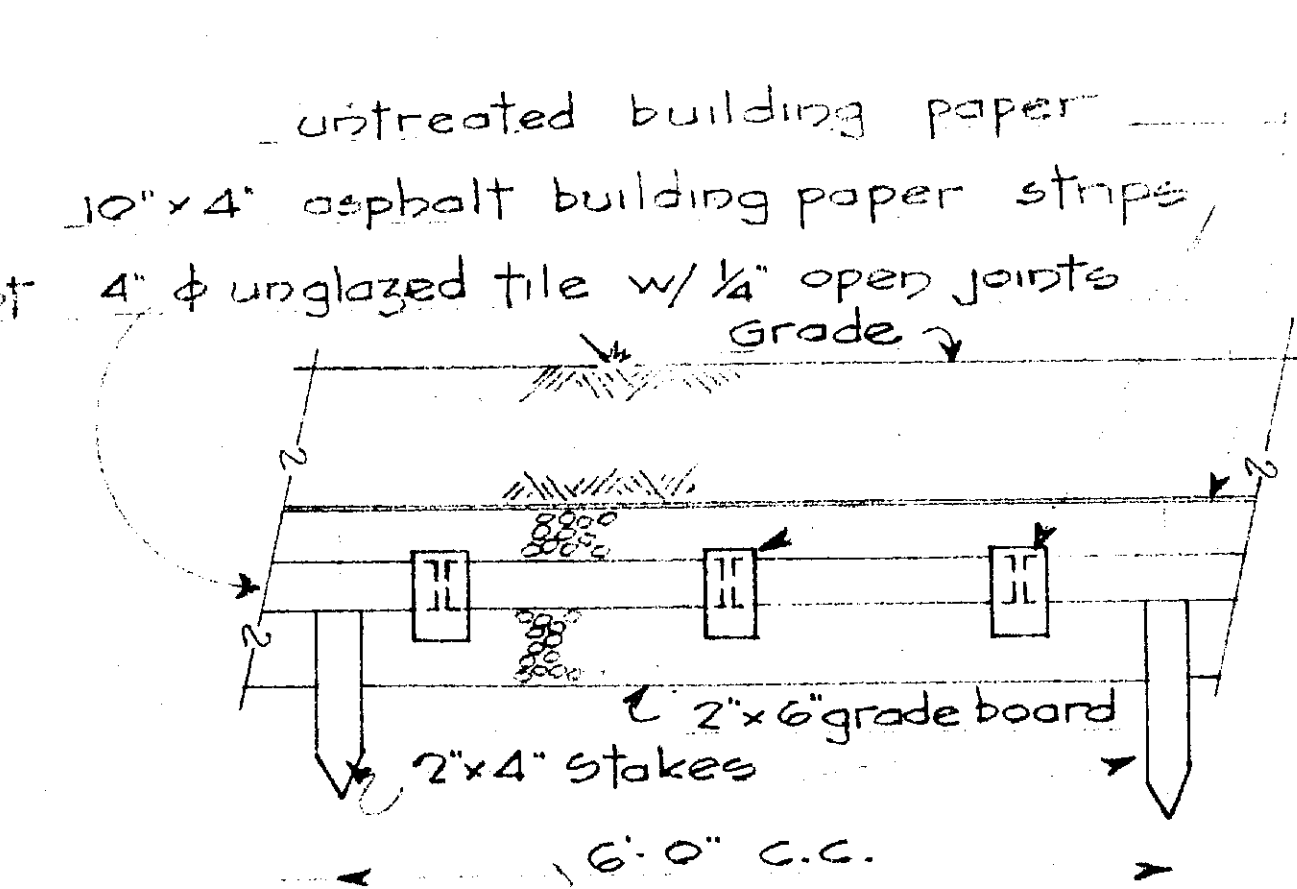 untreated building paper
10"x4" asphalt building paper strips
4" ϕ unglazed tile w/ ¼" open joints
Grade
2"x6" grade board
2"x4" stakes
6'-0" c.c.